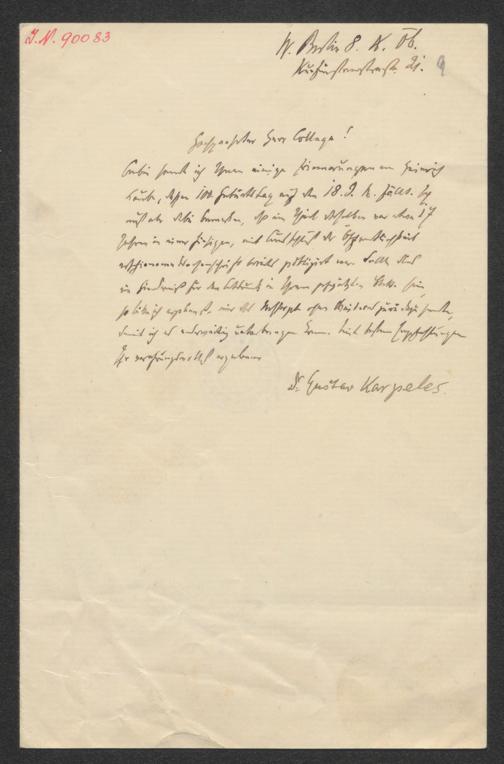 J.N. 90083
W. Berlin 8. X. 06.
Kurfürstenstrasse 21. 9
Hochgeehrter Herr College!
Anbei sende ich Ihnen einige Erinnerungen an Heinrich
Laube, dessen 100. Geburtstag auf den 18. 9. h. fällt. Ich
muß aber dabei bemerken, daß ein Theil derselben vor etwa 17
Jahren in einer hiesigen, mit Ausschluß der Öffentlichkeit
erschienenen Wochenschrift bereits publizirt war. Sollte dies
ein Hinderniß für den Abdruck in Ihrem geschätzten Blatte sein,
so bitte ich ergebenst, mir das Manuscript ohne Weiteres zurückzusenden,
damit ich es anderweitig unterbringen kann. Mit besten Empfehlungen
Ihr verehrungsvollst ergebener
Dr. Gustav Karpeles.